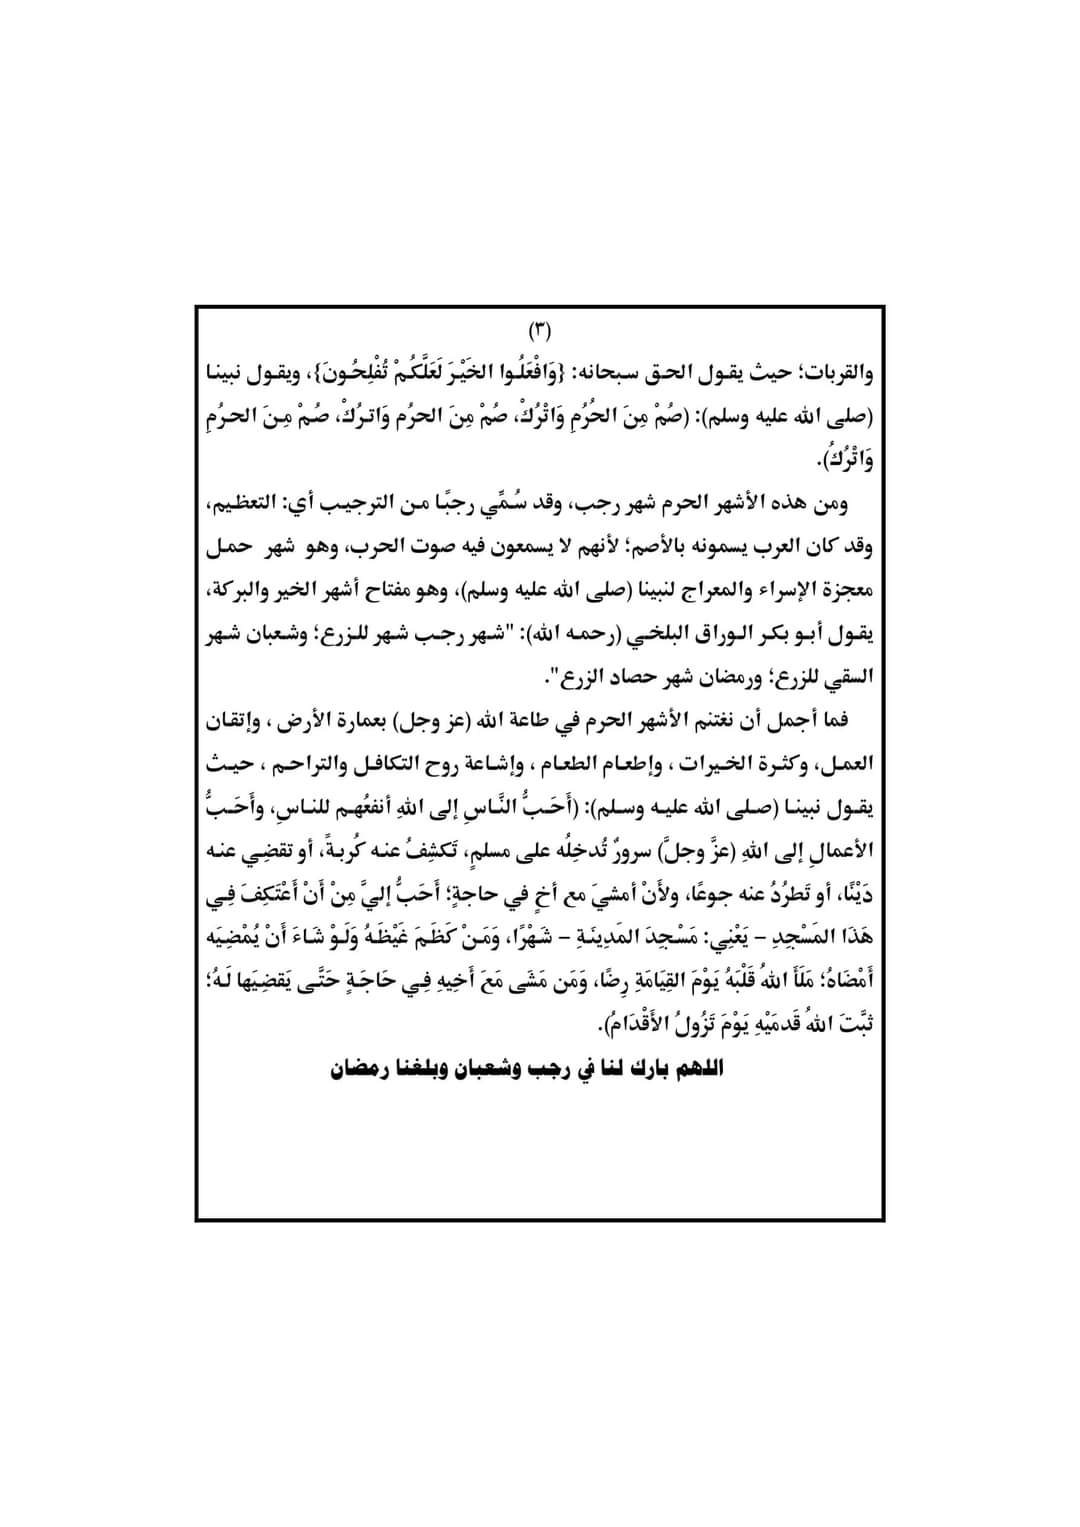 (٣)
والقربات؛ حيث يقول الحق سبحانه: {وَافْعَلُوا الخَيْرَ لَعَلَّكُمْ تُفْلِحُونَ}، ويقول نبينا
(صلى الله عليه وسلم): (صُمْ مِنَ الحُرُمِ وَاتْرُكْ، صُمْ مِنَ الحرُم وَاترُكْ، صُمْ مِنَ الحرُمِ
وَاتْرُكْ).
ومن هذه الأشهر الحرم شهر رجب، وقد سُمِّي رجبًا من الترجيب أي: التعظيم،
وقد كان العرب يسمونه بالأصم؛ لأنهم لا يسمعون فيه صوت الحرب، وهو شهر حمل
معجزة الإسراء والمعراج لنبينا (صلى الله عليه وسلم)، وهو مفتاح أشهر الخير والبركة،
يقول أبو بكر الوراق البلخي (رحمه الله): "شهر رجب شهر للزرع؛ وشعبان شهر
السقي للزرع؛ ورمضان شهر حصاد الزرع".
فما أجمل أن نغتنم الأشهر الحرم في طاعة الله (عز وجل) بعمارة الأرض ، وإتقان
العمل، وكثرة الخيرات ، وإطعام الطعام ، وإشاعة روح التكافل والتراحم ، حيث
يقول نبينا (صلى الله عليه وسلم): (أَحَبُّ النَّاسِ إلى اللهِ أنفعُهم للناسِ، وأَحَبُّ
الأعمالِ إلى اللهِ (عزَّ وجلَّ) سرورٌ تُدخِلُه على مسلمٍ، تَكشِفُ عنه كُربةً، أو تقضِي عنه
دَيْنًا، أو تَطرُدُ عنه جوعًا، ولأَنْ أمشيَ مع أخٍ في حاجةٍ؛ أَحَبُّ إليَّ مِنْ أَنْ أَعْتَكِفَ فِي
هَذَا المَسْجِدِ – يَعْنِي: مَسْجِدَ المَدِينَةِ – شَهْرًا، وَمَنْ كَظَمَ غَيْظَهُ وَلَوْ شَاءَ أَنْ يُمْضِيَه
أَمْضَاهُ؛ مَلَأَ اللهُ قَلْبَهُ يَوْمَ القِيَامَةِ رِضًا، وَمَن مَشَى مَعَ أَخِيهِ فِي حَاجَةٍ حَتَّى يَقضِيَها لَهُ؛
ثبَّتَ اللهُ قَدمَيْهِ يَوْمَ تَزُولُ الأَقْدَامُ).
اللهم بارك لنا في رجب وشعبان وبلغنا رمضان